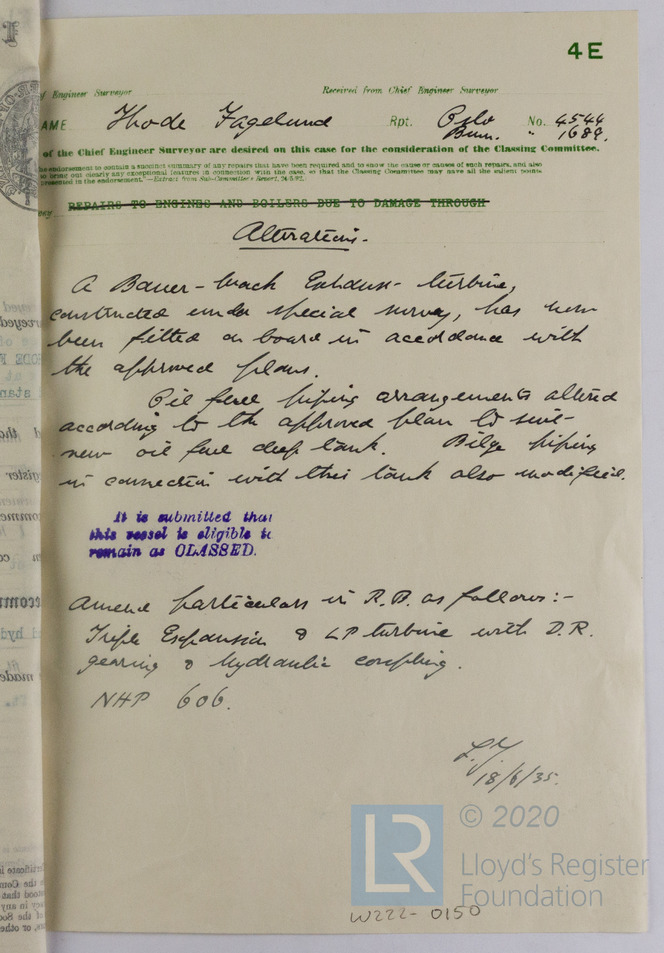 4E
f Engineer Surveyor Received from Chief Engineer Surveyor
AME Thode Fagelund Rpt. Oslo No. 4544
" 1688.
of the Chief Engineer Surveyor are desired on this case for the consideration of the Classing Committee.
he endorsement to contain a succinct summary of any repairs that have been required and to show the cause or causes of such repairs, and also
o bring out clearly any exceptional features in connection with the case, so that the Classing Committee may have all the salient points
presented in the endorsement."—Extract from Sub-Committee's Report,
REPAIRS TO ENGINES AND BOILERS DUE TO DAMAGE THROUGH
Alterations.
A Bauer-Wach Exhaust turbine,
constructed under special survey, has now
been fitted on board in accordance with
the approved plans.
Oil fuel piping arrangements altered
according to the approved plan to suit
new oil fuel deep tank. Bilge piping
in connection with this tank also modified.
It is submitted that
this vessel is eligible to
remain as CLASSED.
Amend particulars in R.B. as follows:-
Triple Expansion & LP turbine with D.R.
gearing & hydraulic coupling.
NHP 606.
18/6/35.
LR
© 2020
Lloyd's Register
Foundation
W222-0150